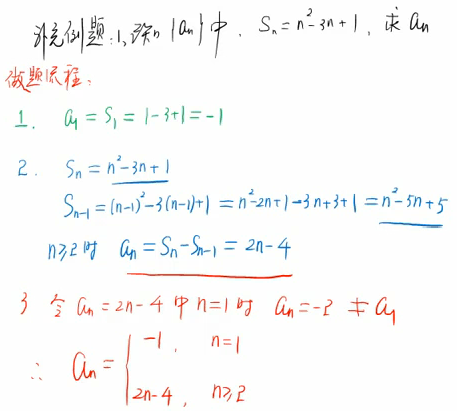 补充例题:1,设 {an}中, Sn=n²-3n+1, 求an
做题流程:
1. a₁=S₁=1-3+1=-1
2. Sn=n²-3n+1
Sn-1=(n-1)²-3(n-1)+1=n²-2n+1-3n+3+1=n²-5n+5
n≥2时 an=Sn-Sn-1=2n-4
3 令 an=2n-4 中 n=1时 an=-2 ≠a₁
∴ an={ -1, n=1
2n-4, n≥2